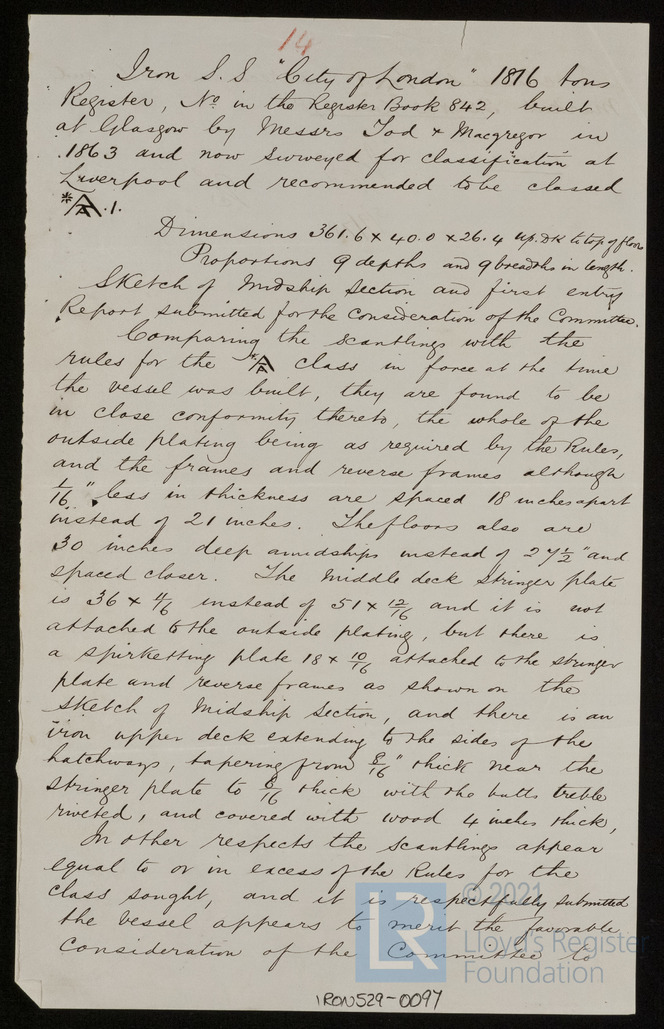 14
Iron S.S "City of London" 1876 tons
Register, No in the Register Book 842, built
at Glasgow by Messrs Tod & Macgregor in
1863 and now surveyed for classification at
Liverpool and recommended to be classed
*A.1.
Dimensions 361.6 x 40.0 x 26.4 up. Dk to top of floors
Proportions 9 depths and 9 breadths in length.
Sketch of Midship Section and first entry
Report submitted for the consideration of the Committee.
Comparing the scantlings with the
rules for the *A class in force at the time
the vessel was built, they are found to be
in close conformity thereto, the whole of the
outside plating being as required by the Rules,
and the frames and reverse frames although
1/16" less in thickness are spaced 18 inches apart
instead of 21 inches. The floors also are
30 inches deep amidships instead of 27 1/2" and
spaced closer. The Middle deck Stringer plate
is 36 x instead of 51 x 12/16 and it is not
attached to the outside plating, but there is
a spirketting plate 18 x 10/16 attached to the stringer
plate and reverse frames as shown on the
Sketch of Midship Section, and there is an
iron upper deck extending to the sides of the
hatchways, tapering from 8/16" thick near the
stringer plate to thick with the butts treble
riveted, and covered with wood 4 inches thick,
In other respects the scantlings appear
equal to or in excess of the Rules for the
class sought, and it is respectfully submitted
the vessel appears to merit the favorable
consideration of the Committee to
LR
© 2021
Lloyd's Register
Foundation
IRON529-0097